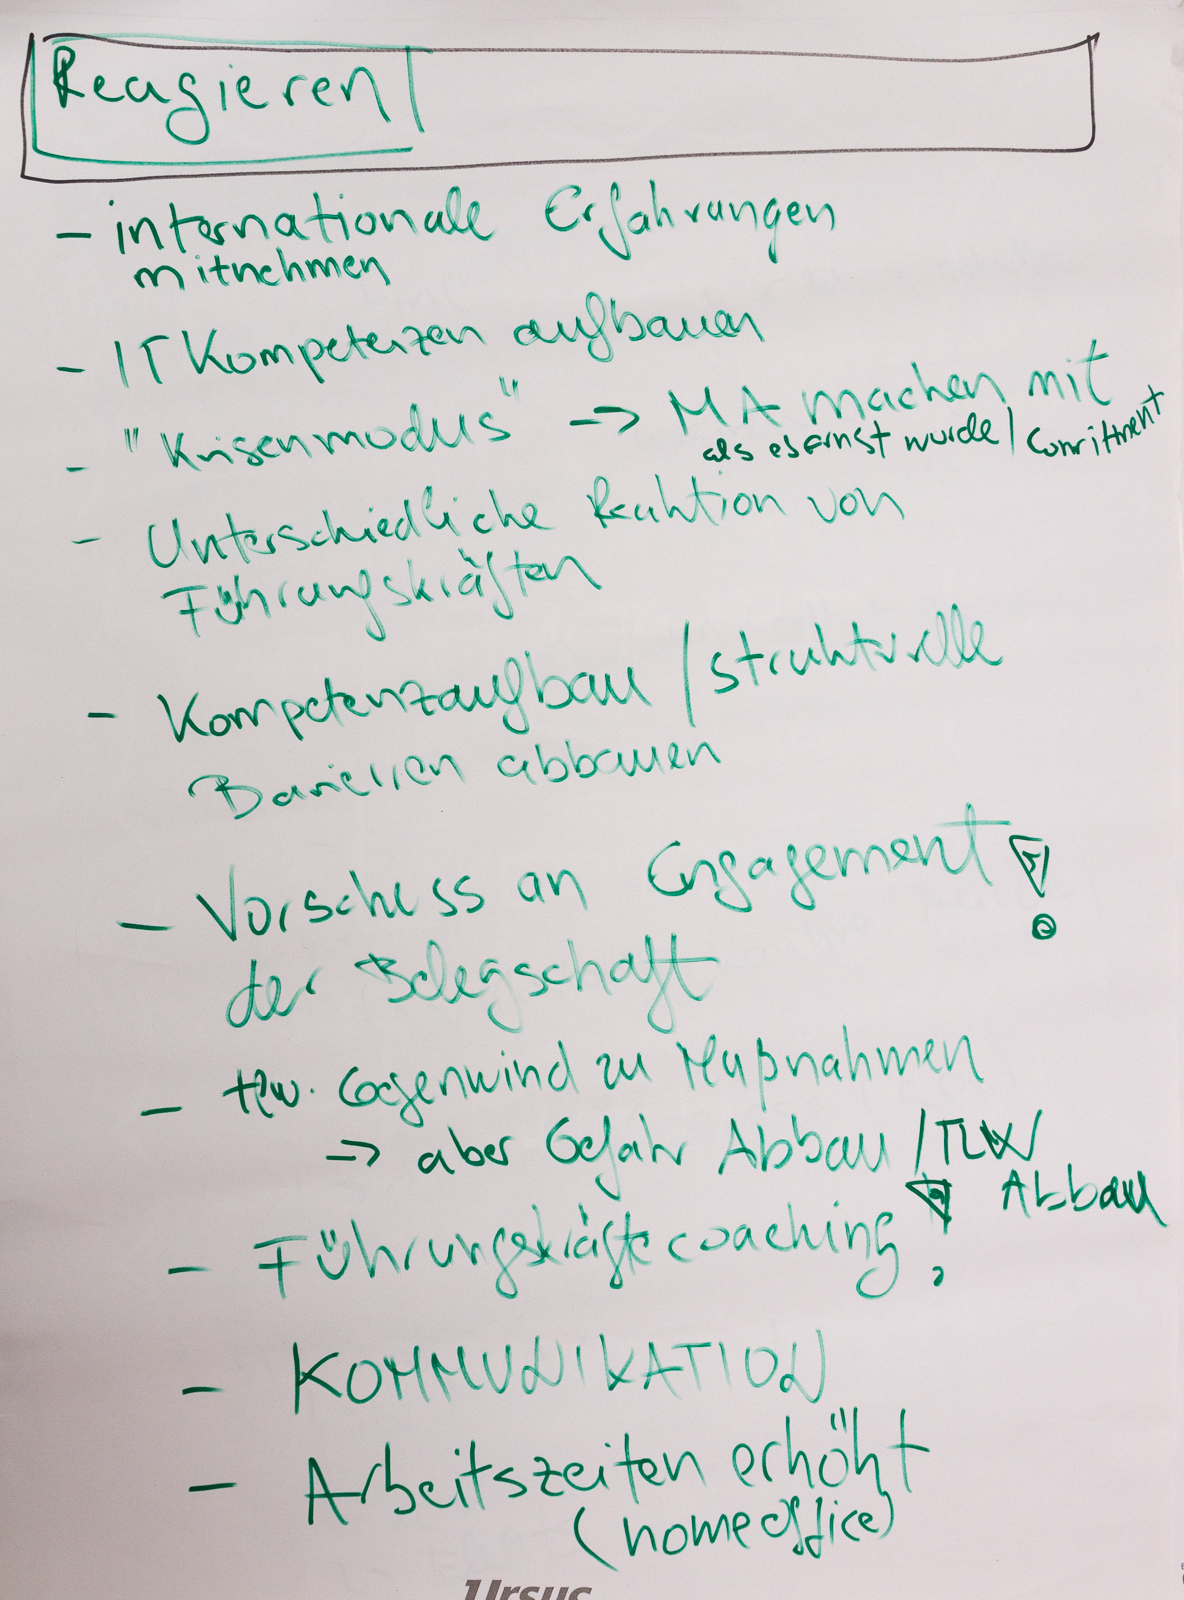 Reagieren
- internationale Erfahrungen
mitnehmen
- IT Kompetenzen aufbauen
- "Krisenmodus" -> MA machen mit
als es ernst wurde / Comittment
- Unterschiedliche Reaktion von
Führungskräften
- Kompetenzaufbau / strukturelle
Barieren abbauen
- Vorschuss an Engagement !
der Belegschaft
- tlw. Gegenwind zu Maßnahmen
-> aber Gefahr Abbau /
Abbau
- Führungskräftecoaching !
- KOMMUNIKATION
- Arbeitszeiten erhöht
(homeoffice)
Ursus